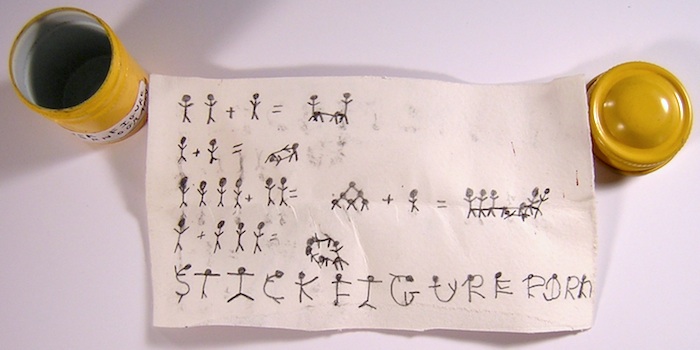 + =
+ =
+ = + =
+ =
STICKFIGUREPORN